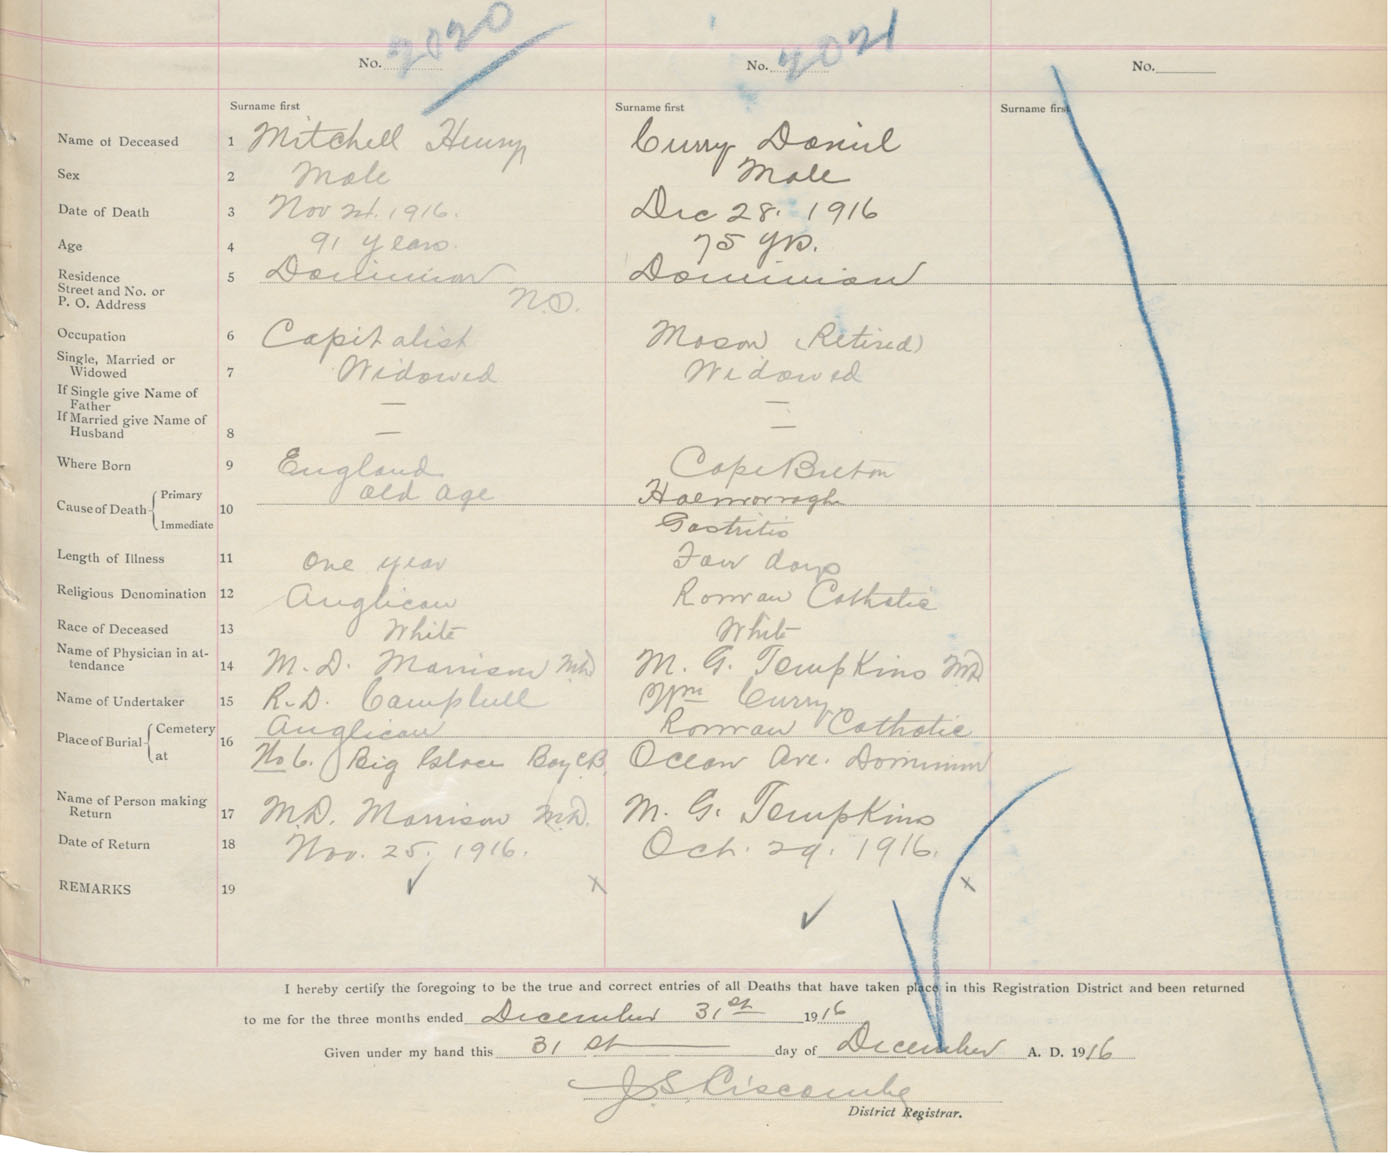 No. 2020 No. 2021 No.
Surname first Surname first Surname first
Name of Deceased 1 Mitchell Henry Curry Daniel
Sex 2 Male Male
Date of Death 3 Nov 24. 1916. Dec 28. 1916
Age 4 91 years. 75 yrs.
Residence 5 Dominion Dominion
Street and No. or
P. O. Address
Occupation 6 Capitalist Mason (Retired)
Single, Married or
Widowed 7 Widowed Widowed
If Single give Name of
Father — —
If Married give Name of
Husband 8 — —
Where Born 9 England Cape Breton
Cause of Death Primary old age Haemorragh
10
Immediate Gastritis
Length of Illness 11 One year Few days
Religious Denomination 12 Anglican Roman Catholic
Race of Deceased 13 White White
Name of Physician in at-
tendance 14 M. D. Morrison MD M. G. Tompkins MD
Name of Undertaker 15 R. D. Campbell Wm Curry
Place of Burial Cemetery Anglican Roman Catholic
16
at No 6. Big Glace Bay CB Ocean Ave. Dominion
Name of Person making
Return 17 M.D. Morrison M.D. M. G. Tompkins
Date of Return 18 Nov. 25, 1916. Oct. 29. 1916.
REMARKS 19 ✓ x x
✓
I hereby certify the foregoing to be the true and correct entries of all Deaths that have taken place in this Registration District and been returned
to me for the three months ended December 31st 1916
Given under my hand this 31 st day of December A. D. 1916
J. S. Liscombe
District Registrar.